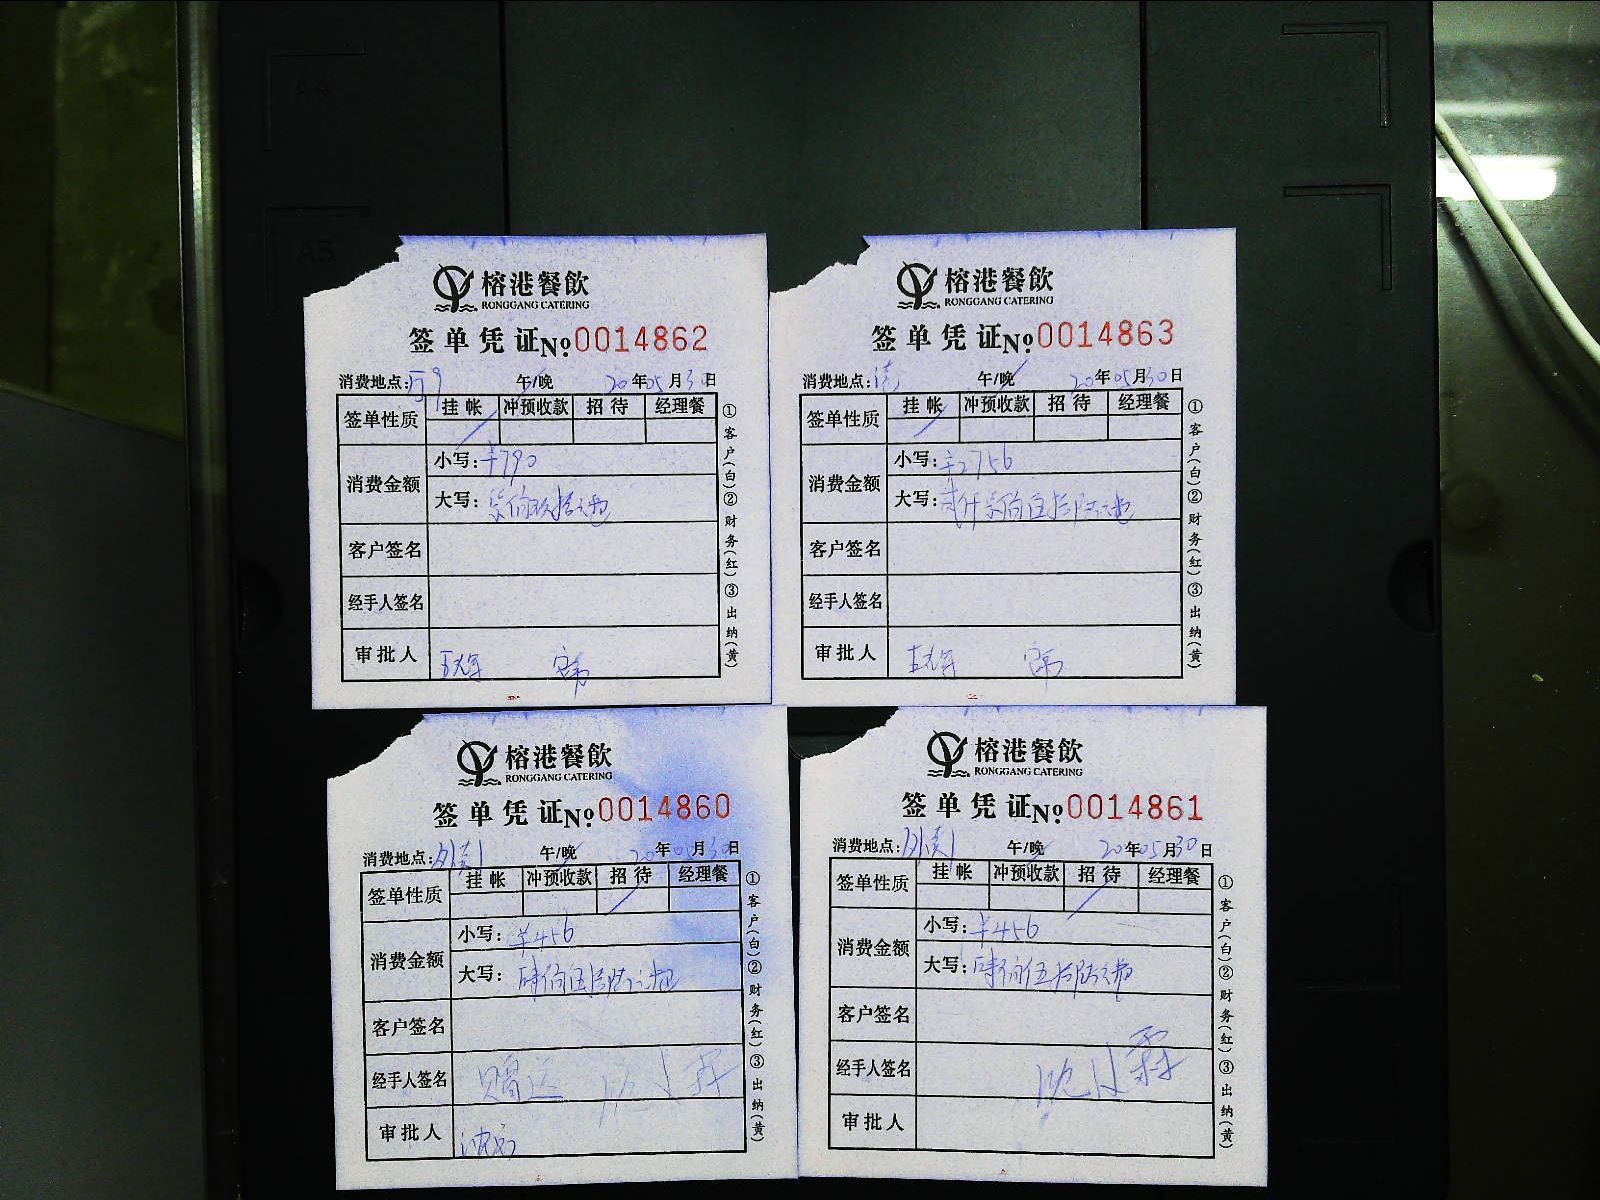 A4
A5
榕港餐飲
RONGGANG CATERING
签单凭证 No 0014862
消费地点: 午/晚 20年05月30日
签单性质 挂帐 冲预收款 招待 经理餐
消费金额
小写: ¥790
大写: 柒佰玖拾元
客户签名
经手人签名
审批人
①客户(白)②财务(红)③出纳(黄)
榕港餐飲
RONGGANG CATERING
签单凭证 No 0014863
消费地点: 午/晚 20年05月30日
签单性质 挂帐 冲预收款 招待 经理餐
消费金额
小写: ¥2756
大写: 贰仟柒佰伍拾陆元
客户签名
经手人签名
审批人
①客户(白)②财务(红)③出纳(黄)
榕港餐飲
RONGGANG CATERING
签单凭证 No 0014860
消费地点: 外卖1 午/晚 20年05月30日
签单性质 挂帐 冲预收款 招待 经理餐
消费金额
小写: ¥456
大写: 肆佰伍拾陆元
客户签名
经手人签名 赠送
审批人
①客户(白)②财务(红)③出纳(黄)
榕港餐飲
RONGGANG CATERING
签单凭证 No 0014861
消费地点: 外卖1 午/晚 20年05月30日
签单性质 挂帐 冲预收款 招待 经理餐
消费金额
小写: ¥456
大写: 肆佰伍拾陆元
客户签名
经手人签名
审批人
①客户(白)②财务(红)③出纳(黄)